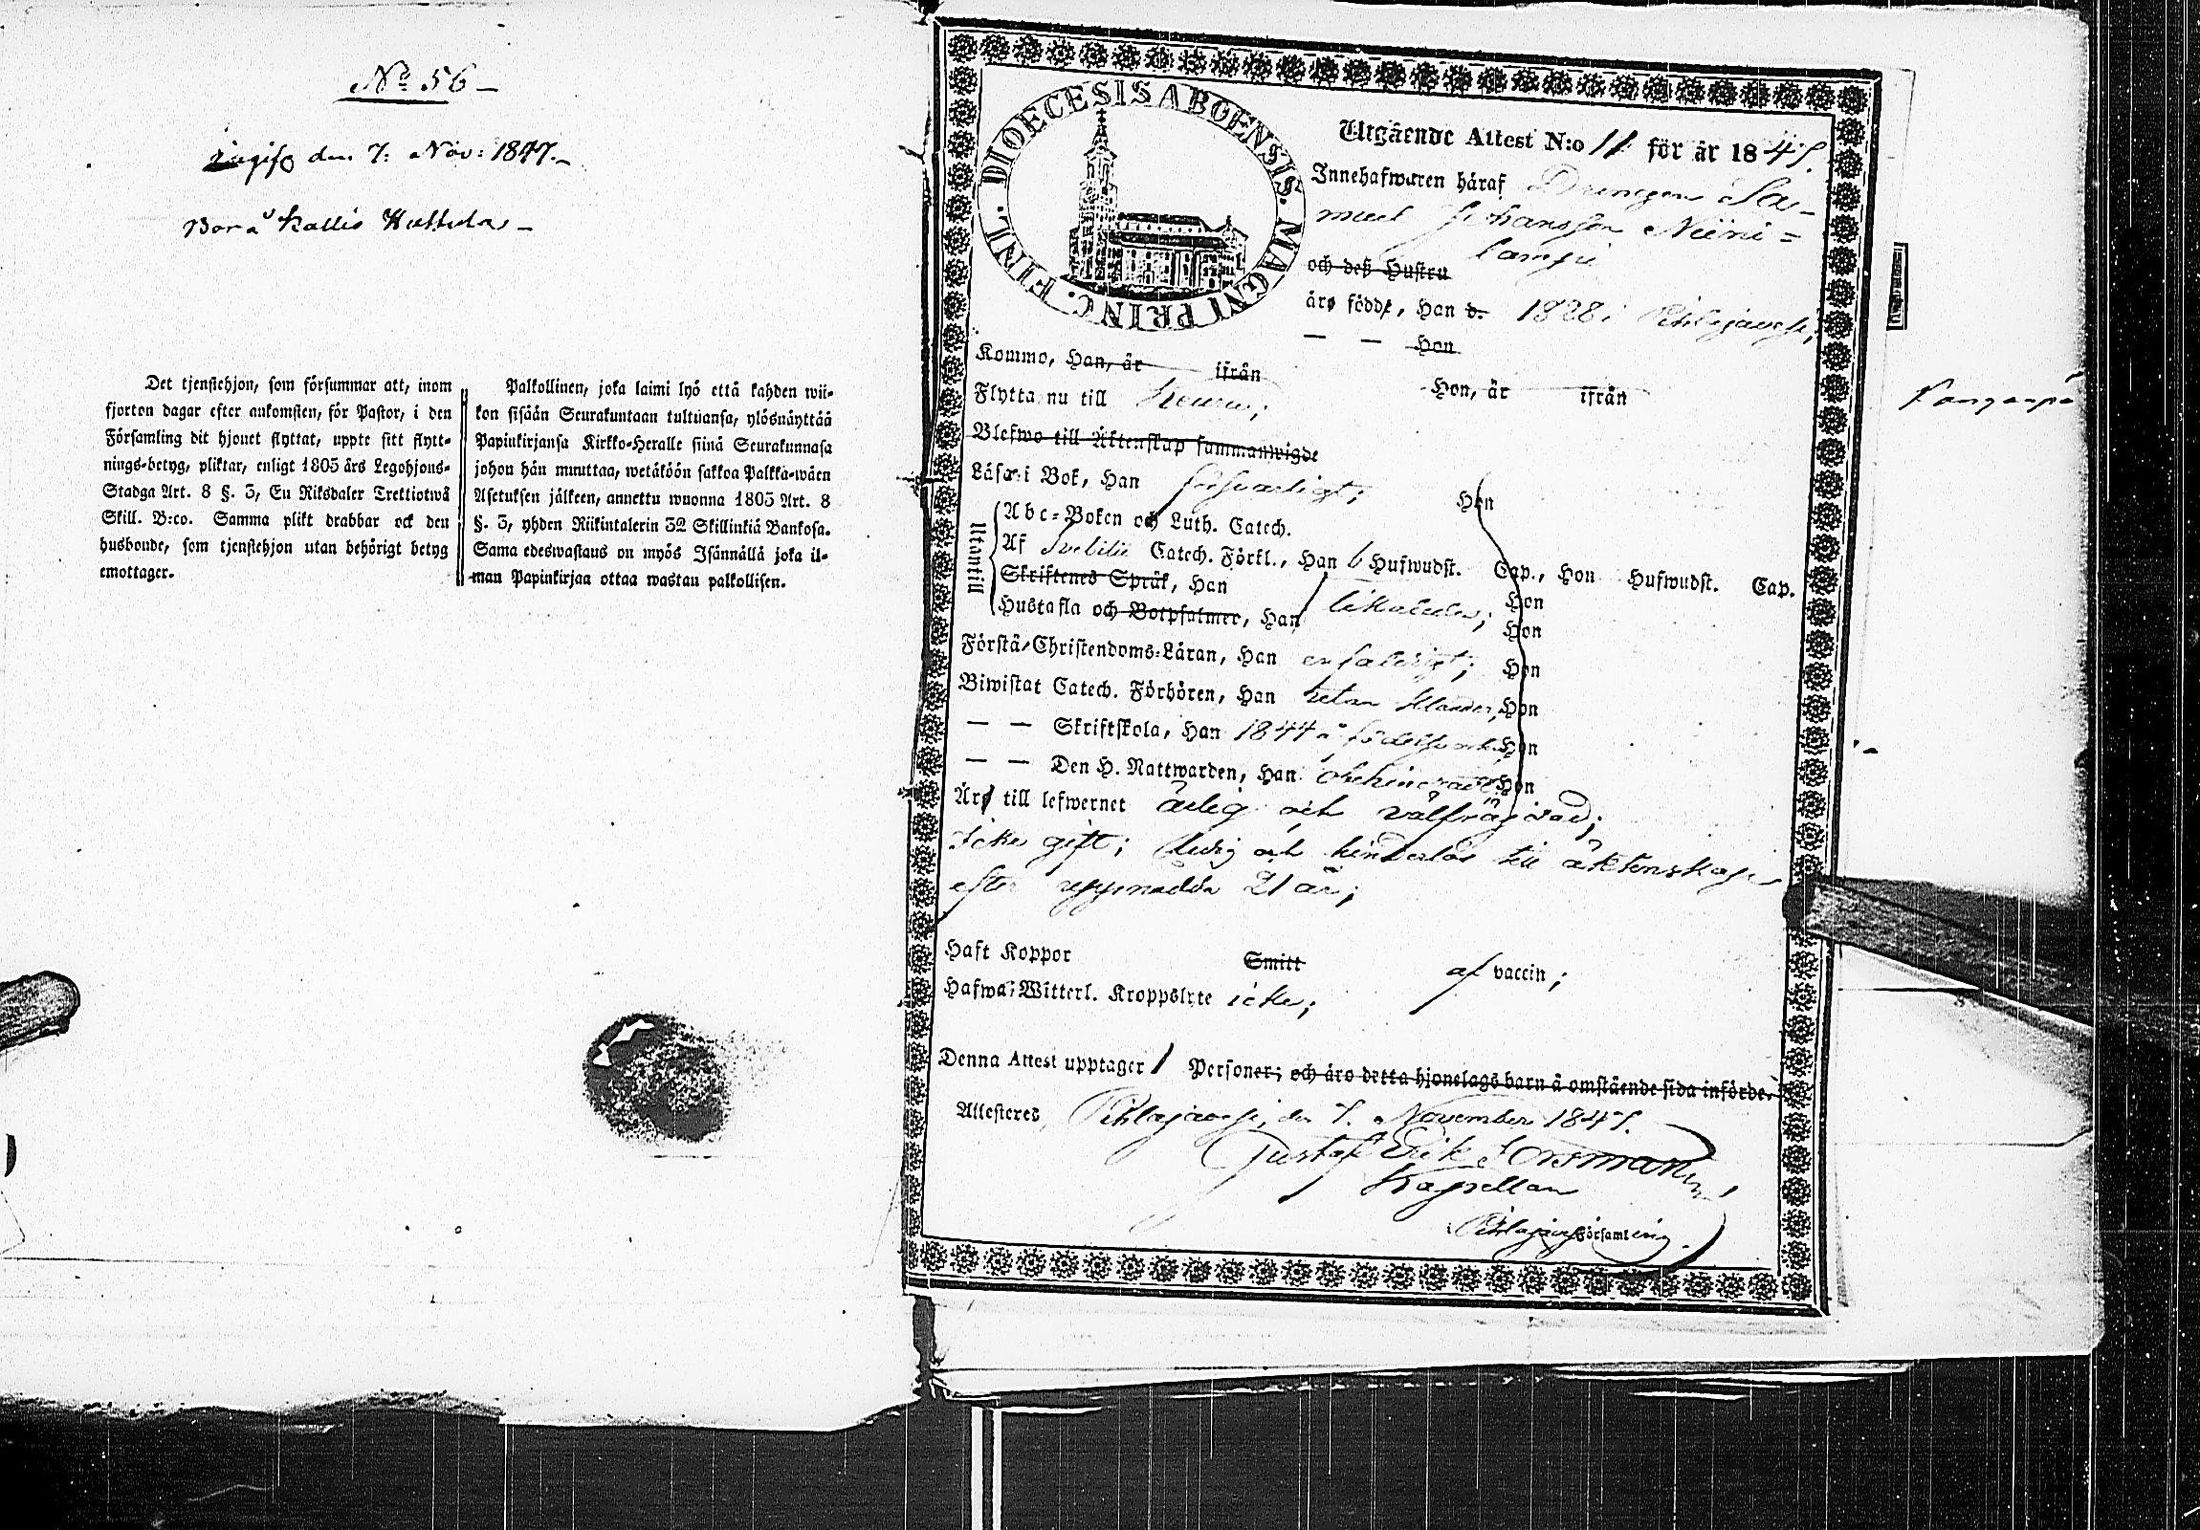 No 56
ingifv den 7: Nov: 1847.
Bor å Kallis
Det tjenstehjon, som försummar att, inom
fjorton dagar efter ankomsten, för Pastor, i den
Församling dit hjonet flyttat, uppte sitt flytt-
nings-betyg, pliktar, enligt 1805 års Legohjons-
Stadga Art. 8 §. 3, En Riksdaler Trettiotwå
Skill. B:co. Samma plikt drabbar ock den
husbonde, som tjenstehjon utan behörigt betyg
emottager.
Palkollinen, joka laimi lyö että kahden wii-
kon sisään Seurakuntaan tultuansa, ylösnäyttää
Papinkirjansa Kirkko-Heralle siinä Seurakunnasa
johon hän muuttaa, wetäköön sakkoa Palkka-wäen
Asetuksen jälkeen, annettu wuonna 1805 Art. 8
§. 3, yhden Riikintalerin 32 Skillinkiä Bankosa.
Sama edeswastaus on myös Isännällä joka il-
man Papinkirjaa ottaa wastan palkollisen.
DIOECESIS ABOENSIS. MAGNI PRINC. FINL.
Utgående Attest N:o 11 för år 1847.
Innehafwaren häraf Drengen Sa-
muel Johansson Niini-
lampi
och deß Hustru
äro födde, Han d. 1828 i Pihlajavesi;
— — Hon
Kommo, Han, är ifrån Hon, är ifrån
Flytta nu till Keuru;
Blefwo till Äktenskap sammanwigde
Läsa i Bok, Han försvarligt; Hon
Utantill
Abc-Boken och Luth. Catech.
Af Svebilii Catech. Förkl., Han 6 Hufwudst. Cap., Hon Hufwudst. Cap.
Skriftenes Språk, Han Hon
Hustafla och Botpsalmer, Han Hon
Förstå Christendoms-Läran, Han enfaldigt; Hon
Biwistat Catech. Förhören, Han Hon
— — Skriftskola, Han 1844 Hon
— — Den H. Nattwarden, Han ohehindrad Hon
Äro till lefwernet ärlig och välfräjdad;
Icke gift; ledig och hinderlös till äktenskap
efter uppnådda 21 år;
Haft Koppor Smitt af vaccin;
Hafwa Witterl. Kroppslyte icke;
Denna Attest upptager 1 Personer; och äro detta hjonelags barn å omstående sida införde.
Attesteres, Pihlajavesi, den 7. November 1847.
Gustaf Erik Forsman
Kapellan
Pihlajavesi Församling.
Kangaspä